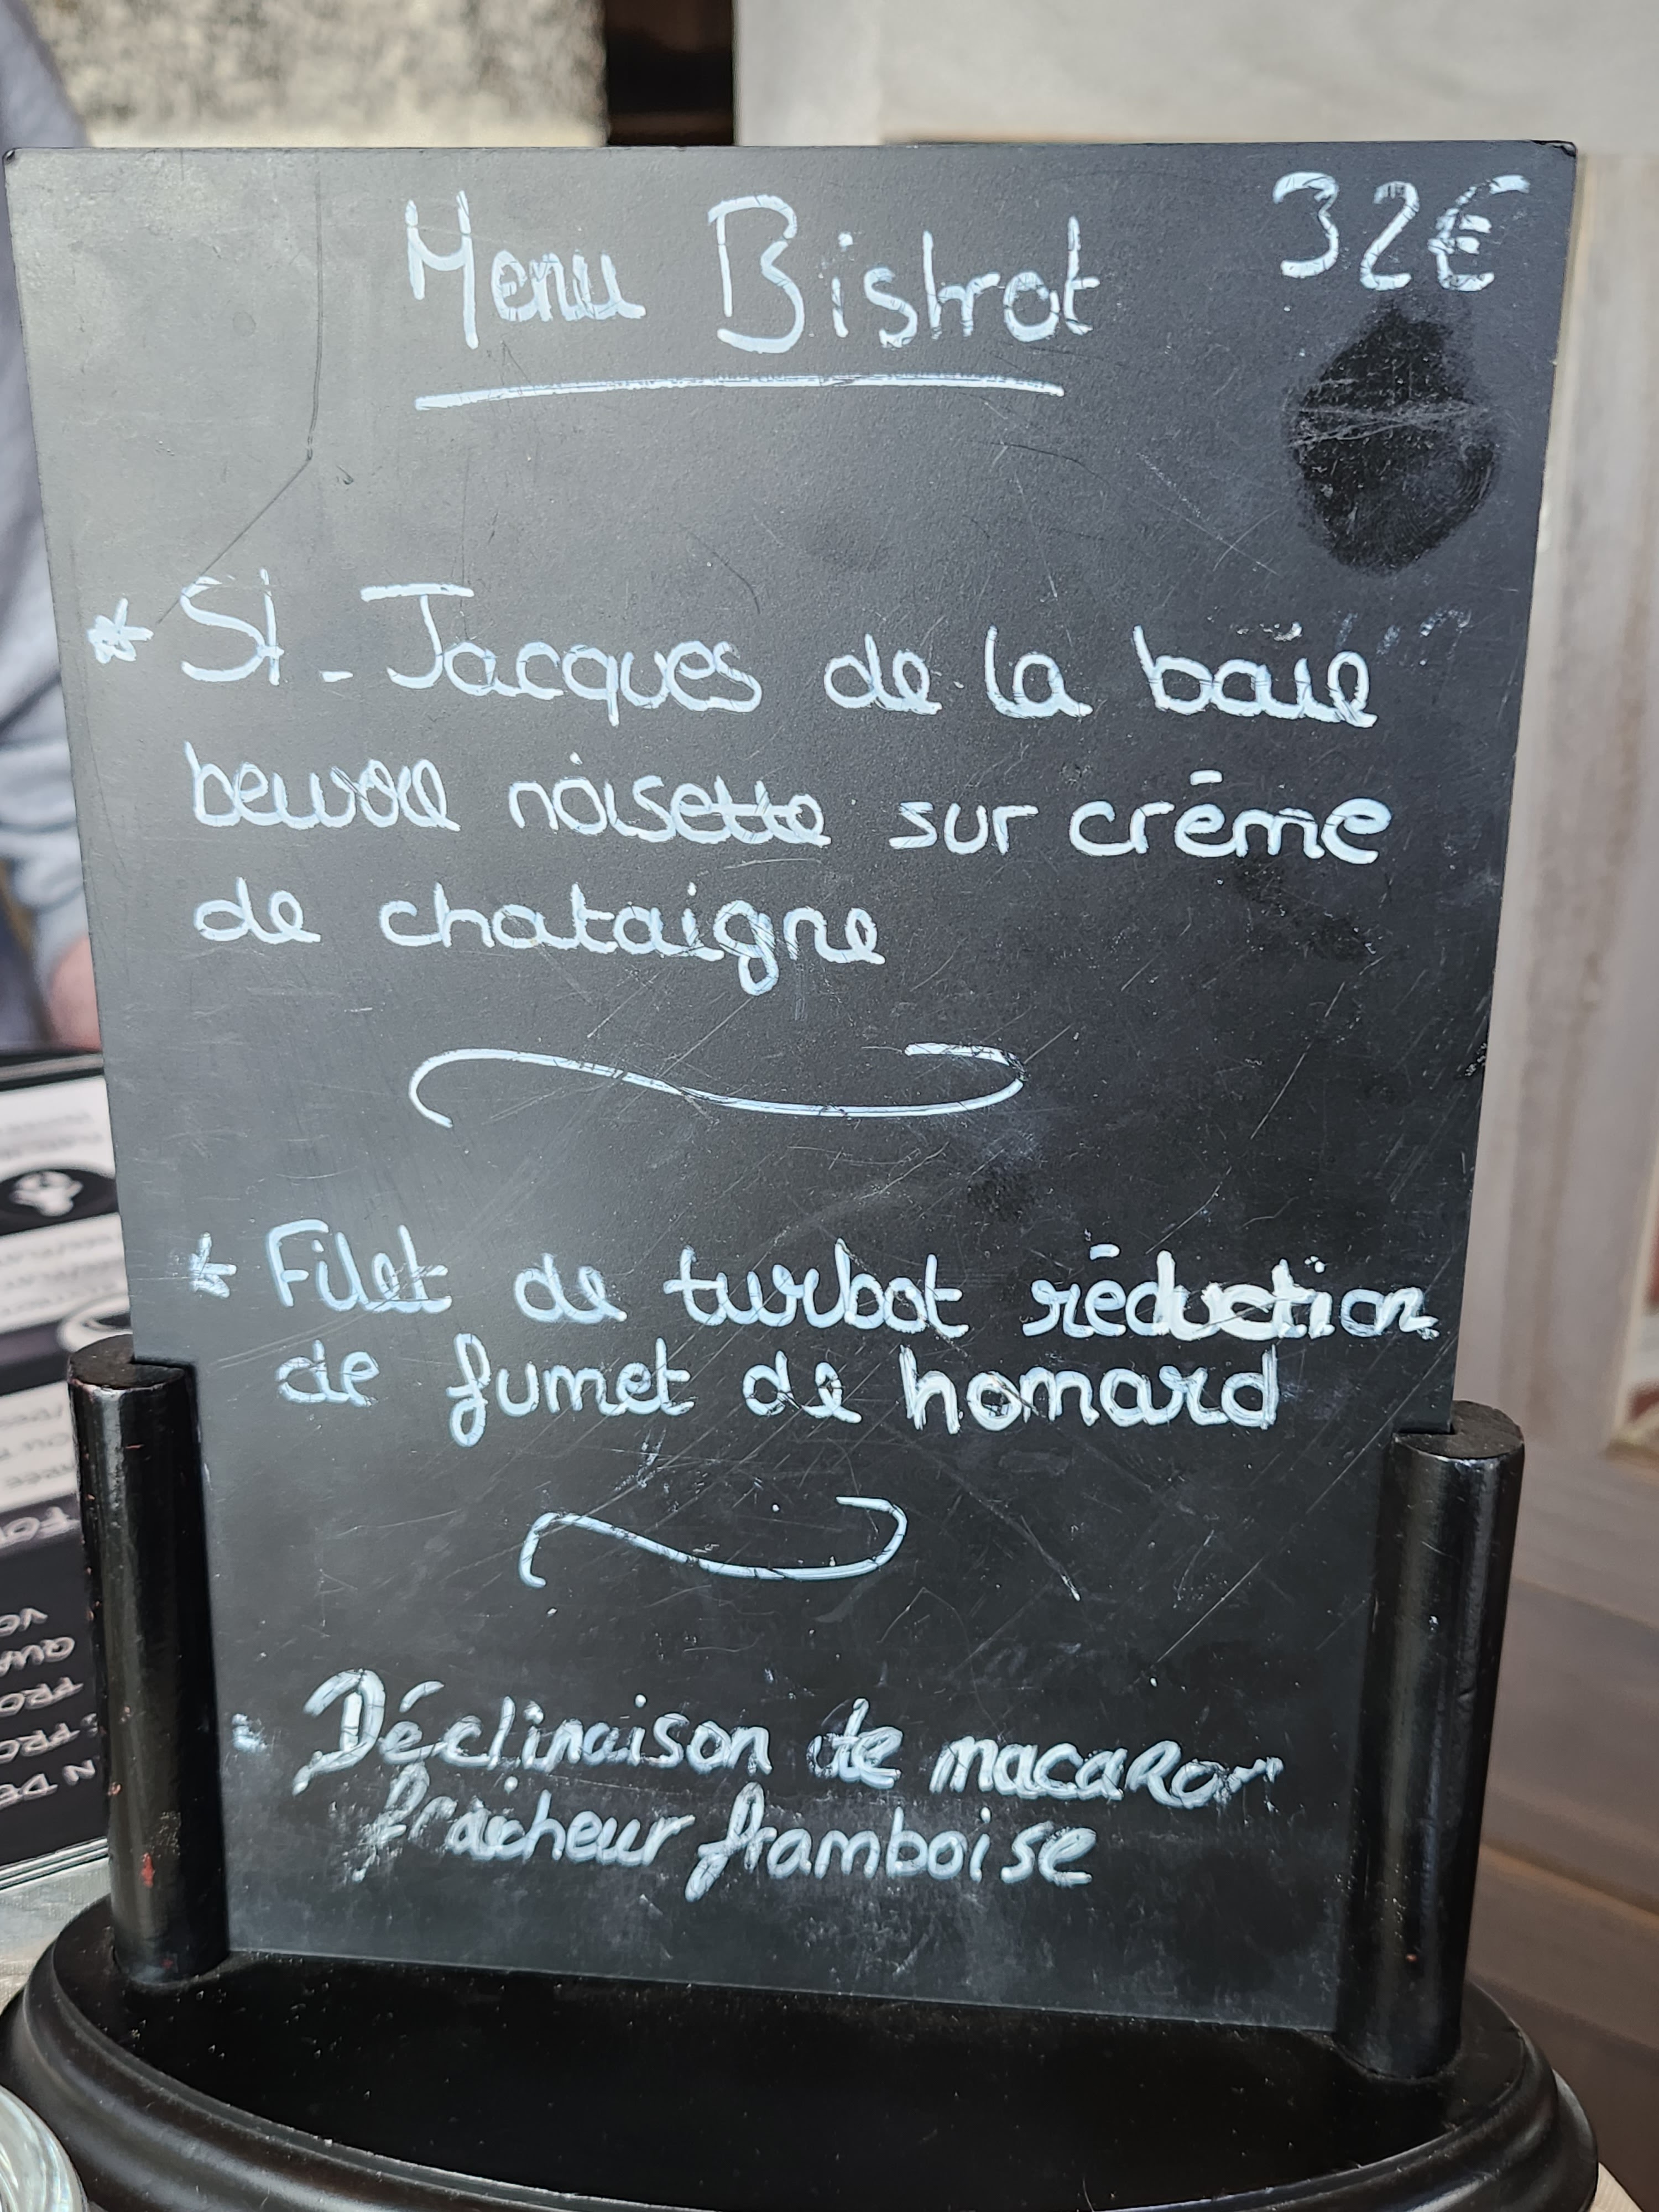 Menu Bistrot 32€
* St-Jacques de la baie
beurre noisette sur crème
de chataigne
* Filet de turbot réduction
de fumet de homard
Déclinaison de macaron
fraicheur framboise